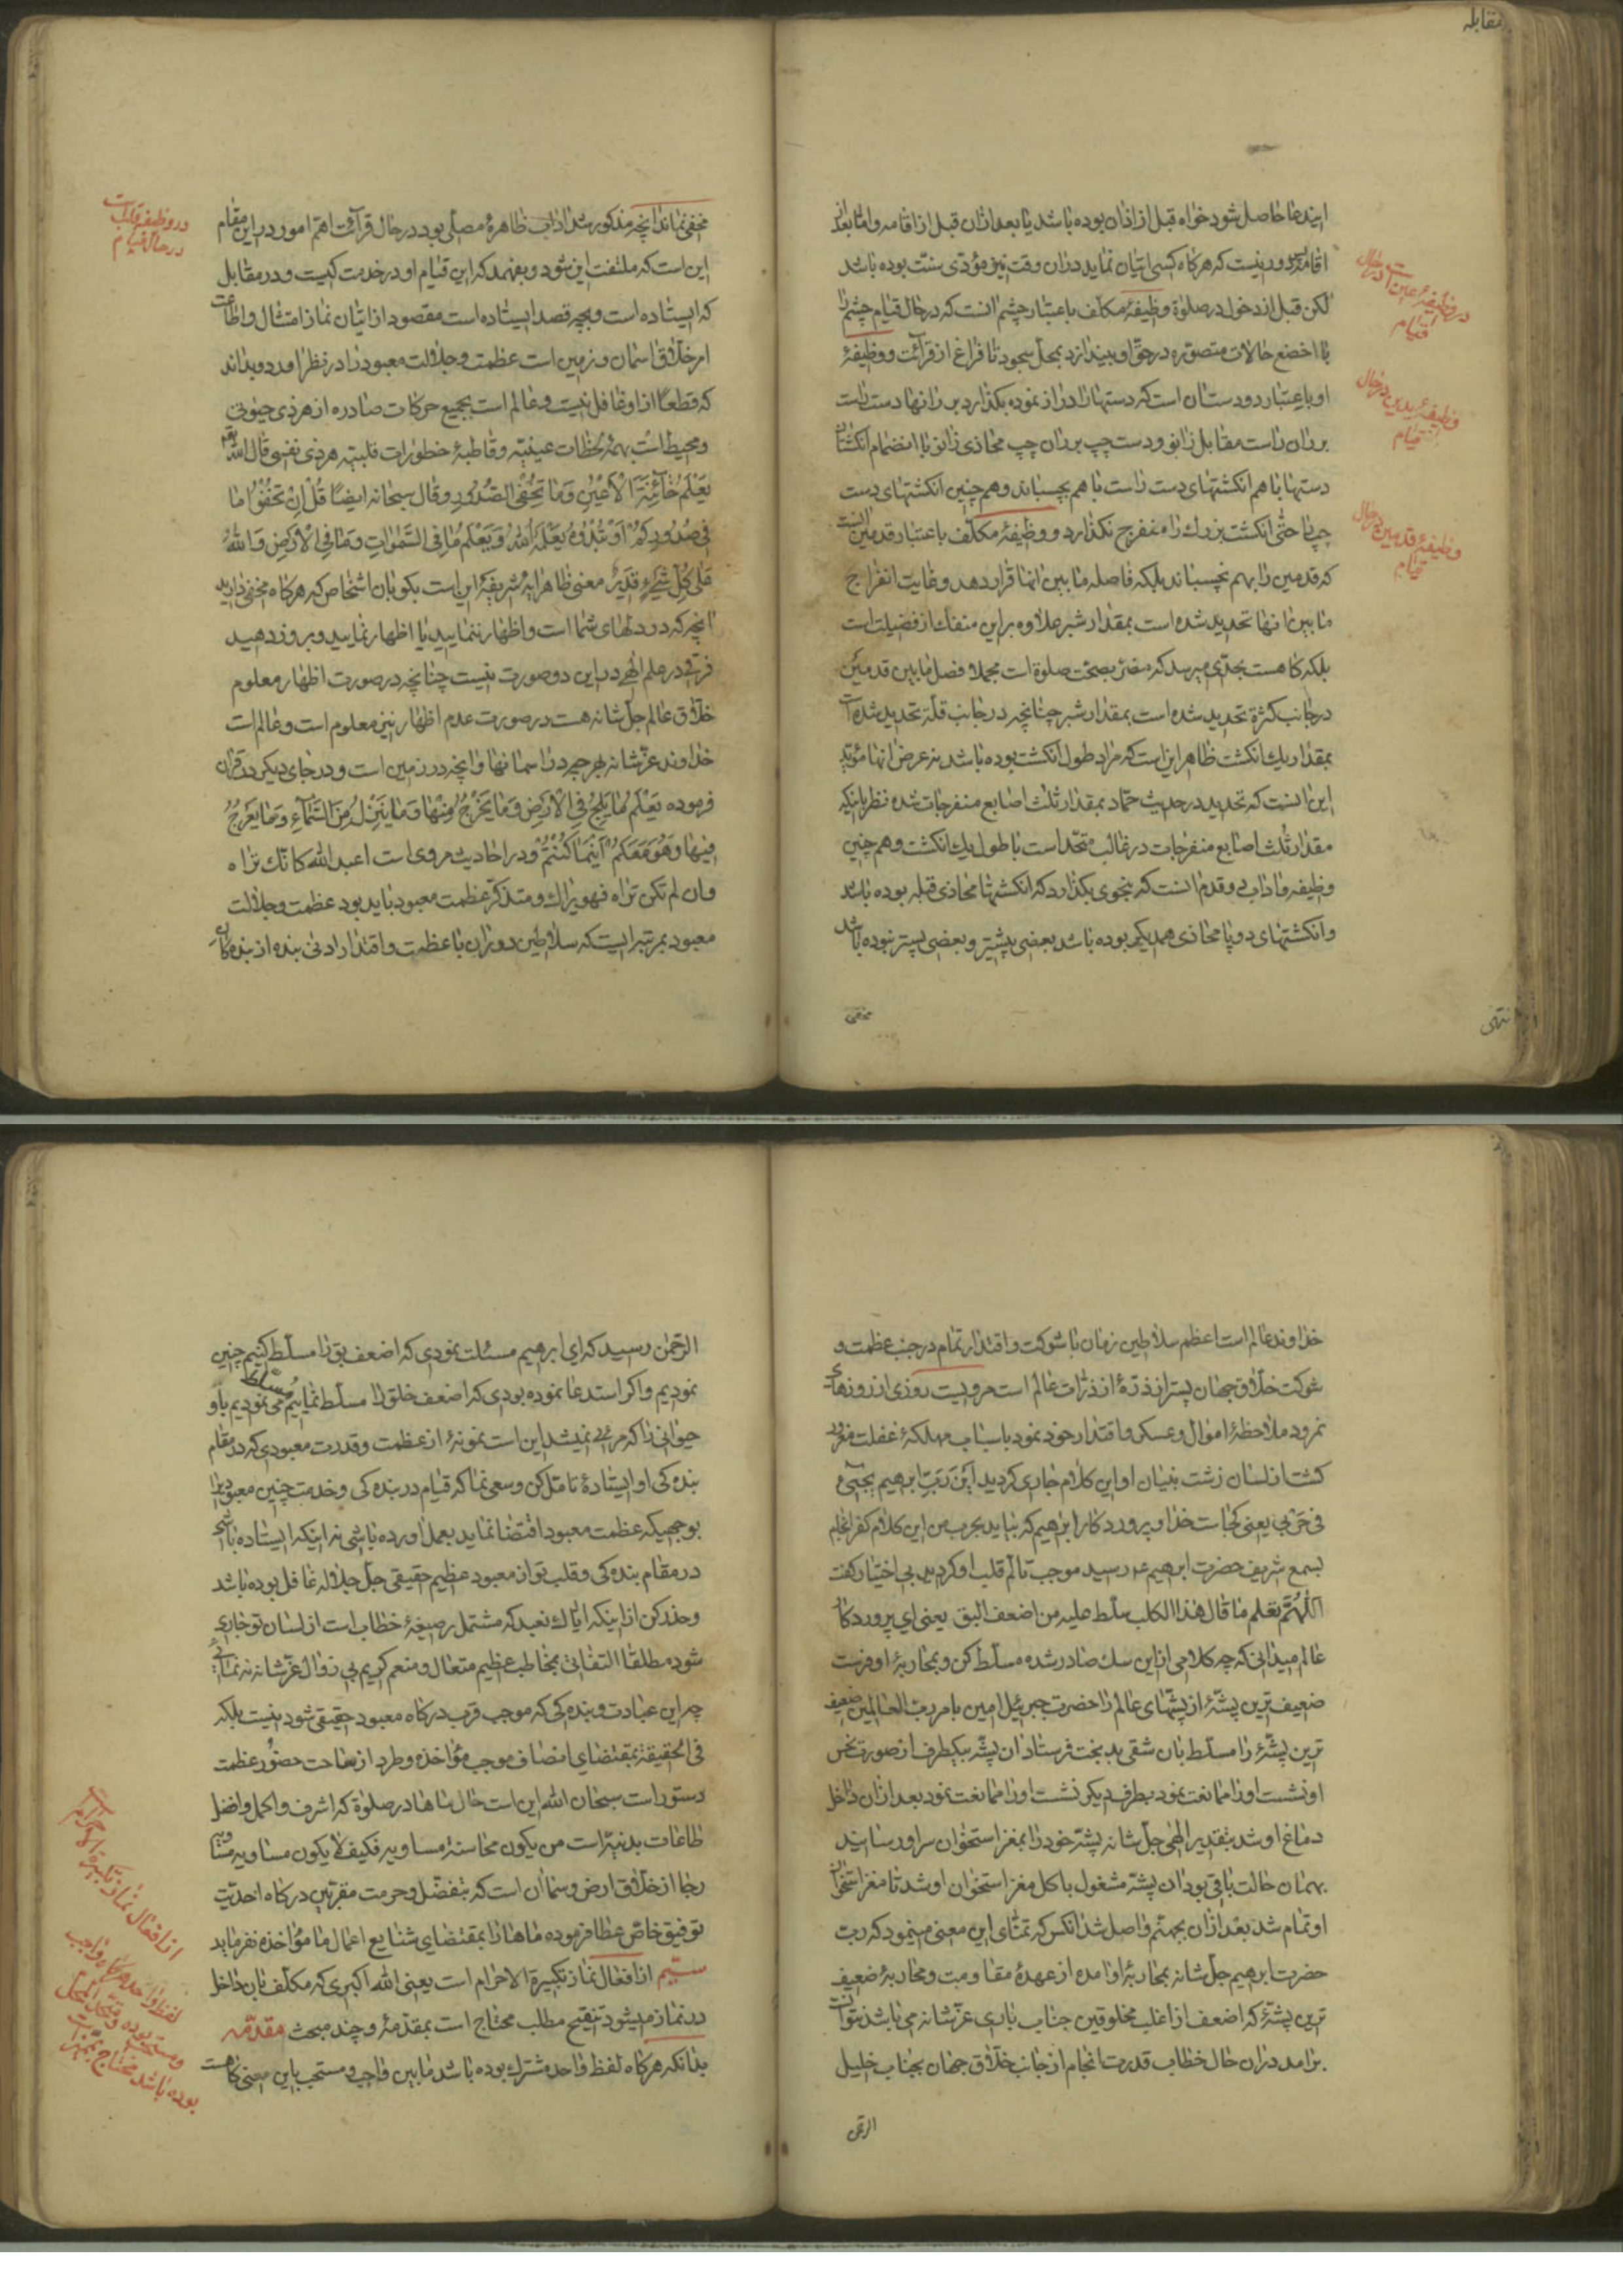 مقابله
ایندعا حاصل شود خواه قبل از اذان بوده باشد یا بعد از ان قبل از اقامه و اما بعد از
اقامه پس دور نیست که هرکاه کسی اتیان نماید در ان وقت نیز مؤدّی سنّت بوده باشد
لکن قبل از دخول در صلوة وظیفهٔ مکلّف باعتبار چشم انست که در حال قیام چشم را
با اخضع حالات متصوّره در حقّ او بیندازد بمحلّ سجود تا فراغ از قرائت و وظیفهٔ
او باعتبار دو دستان است که دستها را دراز نموده بکذارد بر رانها دست راست
بر ران راست مقابل زانو و دست چپ بر ران چپ محاذی زانو با انضمام انکشتان
دستها با هم انکشتهای دست راست با هم بچسباند و هم چنین انکشتهای دست
چپ را حتّی انکشت بزرك را منفرج نکذارد و وظیفهٔ مکلّف باعتبار قدمین انست
که قدمین را بهم نچسباند بلکه فاصله ما بین انها قرار دهد و غایت انفراج
ما بین انها تحدید شده است بمقدار شبر علاوه بر این منفك از فضیلت است
بلکه کاهست بحدّی میرسد که مضرّ بصحّت صلوة است مجملا فصل ما بین قدمین
در جانب کثرة تحدید شده است بمقدار شبر چنانچه در جانب قلّة تحدید شده است
بمقدار یك انکشت ظاهر این است که مراد طول انکشت بوده باشد نه عرض انها مؤیّد
این انست که تحدید در حدیث حمّاد بمقدار ثلث اصابع منفرجات شده نظر باینکه
مقدار ثلث اصابع منفرجات در غالب متّحد است با طول یك انکشت و هم چنین
وظیفه و اداب دو قدم انست که بنحوی بکذارد که انکشتها محاذی قبله بوده باشد
و انکشتهای دو پا محاذی همدیکر بوده باشد بعضی پیشتر و بعضی پستر نبوده باشد
مخفی
در وظیفهٔ عین است در حال قیام
وظیفهٔ یدین در حال قیام
وظیفهٔ قدمین در حال قیام
مخفی نماند انچه مذکور شد اداب ظاهرهٔ مصلّی بود در حال قرائت اهمّ امور در این مقام
این است که ملتفت این شود و بفهمد که این قیام او در خدمت کیست و در مقابل
که ایستاده است و بچه قصد ایستاده است مقصود از اتیان نماز امتثال و اطاعت
امر خلّاق اسمان و زمین است عظمت و جلالت معبود را در نظر اورد و بداند
که قطعًا از او غافل نیست و عالم است بجمیع حرکات صادره از هر ذی حیوتی
و محیط است بهمهٔ لحظات عینیّه و قاطبهٔ خطورات قلبیّه هر ذی نفسی قال الله تعالی
یَعْلَمُ خٰائِنَةَ الْاَعْیُنِ وَمٰا تُخْفِی الصُّدُورِ و قال سبحانه ایضًا قُلْ اِنْ تُخْفُوا مٰا
فِی صُدُورِکُمْ اَوْ تُبْدُوهُ یَعْلَمْهُ اللّٰهُ وَ یَعْلَمُ مٰا فِی السَّمٰوٰاتِ وَمٰا فِی الْاَرْضِ وَاللّٰهُ
عَلٰی کُلِّ شَیْءٍ قَدِیرٌ معنی ظاهر ایهٔ شریفه این است بکو بان اشخاص که هرکاه مخفی دارید
انچه که در دلهای شما است و اظهار ننمایید یا اظهار نمایید و بروز دهید
فرقی در علم الهی در این دو صورت نیست چنانچه در صورت اظهار معلوم
خلّاق عالم جلّ شانه هست در صورت عدم اظهار نیز معلوم است و عالم است
خداوند عزّ شانه بهر چه در اسمانها و انچه در زمین است و در جای دیکر در قران
فرموده یَعْلَمُ مٰا یَلِجُ فِی الْاَرْضِ وَمٰا یَخْرُجُ مِنْهٰا وَمٰا یَنْزِلُ مِنَ السَّمٰاءِ وَمٰا یَعْرُجُ
فِیهٰا وَهُوَ مَعَکُمْ اَیْنَمٰا کُنْتُمْ و در احادیث مروی است اعبد الله کانّك تراه
و ان لم تکن تراه فهو یراك و متذکّر عظمت معبود باید بود عظمت و جلالت
معبود بمرتبه ایست که سلاطین دوران با عظمت و اقتدار ادنی بنده از بندهکان
در وظیفهٔ قلب است در حال قیام
خداوند عالم است اعظم سلاطین زمان با شوکت و اقتدار تمام در جنب عظمت و
شوکت خلّاق جهان پستر از ذرّهٔ از ذرّات عالم است مرویست روزی از روزهای
نمرود ملاحظهٔ اموال و عسکر و اقتدار خود نمود باسباب مهلکهٔ غفلت مغرور
کشت از لسان زشت بنیان او این کلام جاری کردید اَیْنَ رَبِّ ابرهیم یجیئ
فی حَرْبی یعنی کجا است خدا و پروردکار ابرهیم که بیاید بحرب من این کلام کفر انجام
بسمع شریف حضرت ابرهیم ع رسید موجب تالّم قلب او کردید بی اختیار کفت
اللّٰهُمَّ تعلم ما قال هذا الکلب سلّط علیه من اضعف البق یعنی ای پروردکار
عالم میدانی که چه کلامی از این سك صادر شده مسلّط کن و بمحاربهٔ او فرست
ضعیف ترین پشّهٔ از پشّهای عالم را حضرت جبرئیل امین بامر ربّ العالمین ضعیف
ترین پشّهٔ را مسلّط بان شقی بد بخت فرستاد ان پشّه بیکطرف از صورت نحس
او نشست او را ممانعت نمود بطرف دیکر نشست او را ممانعت نمود بعد از ان داخل
دماغ او شد بتقدیر الهی جلّ شانه پشّه خود را بمغز استخوان سر او رسانید
بهمان حالت باقی بود ان پشّه مشغول باکل مغز استخوان او شد تا مغز استخوان
او تمام شد بعد از ان بجهنّم واصل شد انکس که تمنّای این معنی مینمود که ربّ
حضرت ابرهیم جلّ شانه بمحاربهٔ او امده از عهدهٔ مقاومت و محاربهٔ ضعیف
ترین پشّهٔ که اضعف از اغلب مخلوقین جناب باری عزّ شانه می باشد نتوانست
برامد در ان حال خطاب قدرت انجام از جانب خلّاق جهان بجناب خلیل
الرحمن
الرّحمن رسید که ای ابرهیم مسئلت نمودی که اضعف بق را مسلّط کنیم چنین
نمودیم و اکر استدعا نموده بودی که اضعف خلق را مسلّط نماییم مسلّط می نمودیم باو
حیوانی را که مرئی نمیشد این است نمونهٔ از عظمت و قدرت معبودی که در مقام
بنده کی او ایستادهٔ تامّل کن و سعی نما که قیام در بنده کی و خدمت چنین معبودی را
بوجهیکه عظمت معبود اقتضا نماید بعمل اورده باشی نه اینکه ایستاده باشی
در مقام بنده کی و قلب تو از معبود عظیم حقیقی جلّ جلاله غافل بوده باشد
و حذر کن از اینکه ایّاك نعبد که مشتمل بر صیغهٔ خطاب است از لسان تو جاری
شود مطلقًا التفاتی بمخاطب عظیم متعال و منعم کریم بی زوال عزّ شانه ننمائی
چه این عبادت و بنده کی که موجب قرب درکاه معبود حقیقی شود نیست بلکه
فی الحقیقة بمقتضای انصاف موجب مؤاخذه و طرد از ساحت حضور عظمت
دستور است سبحان الله این است حال ماها در صلوة که اشرف و اکمل و افضل
طاعات بدنیّه است من یکون محاسنه مساویه فکیف لا یکون مساویه مساویه
رجا از خلّاق ارض و سما ان است که بتفضّل و حرمت مقرّبین درکاه احدیّت
توفیق خاصّ عطا فرموده ماها را بمقتضای شنایع اعمال ما مؤاخذه نفرماید
سیّم از افعال نماز تکبیرة الاحرام است یعنی الله اکبری که مکلّف بان داخل
در نماز میشود تنقیح مطلب محتاج است بمقدّمهٔ و چند مبحث مقدّمه
بدانکه هرکاه لفظ واحد مشترك بوده باشد ما بین واجب و مستحب باین معنی کاهست
از افعال نماز تکبیرة الاحرام است
لفظ واحد هرکاه واجب
و مستحب بوده
بوده باشد محتاج بممیّز است